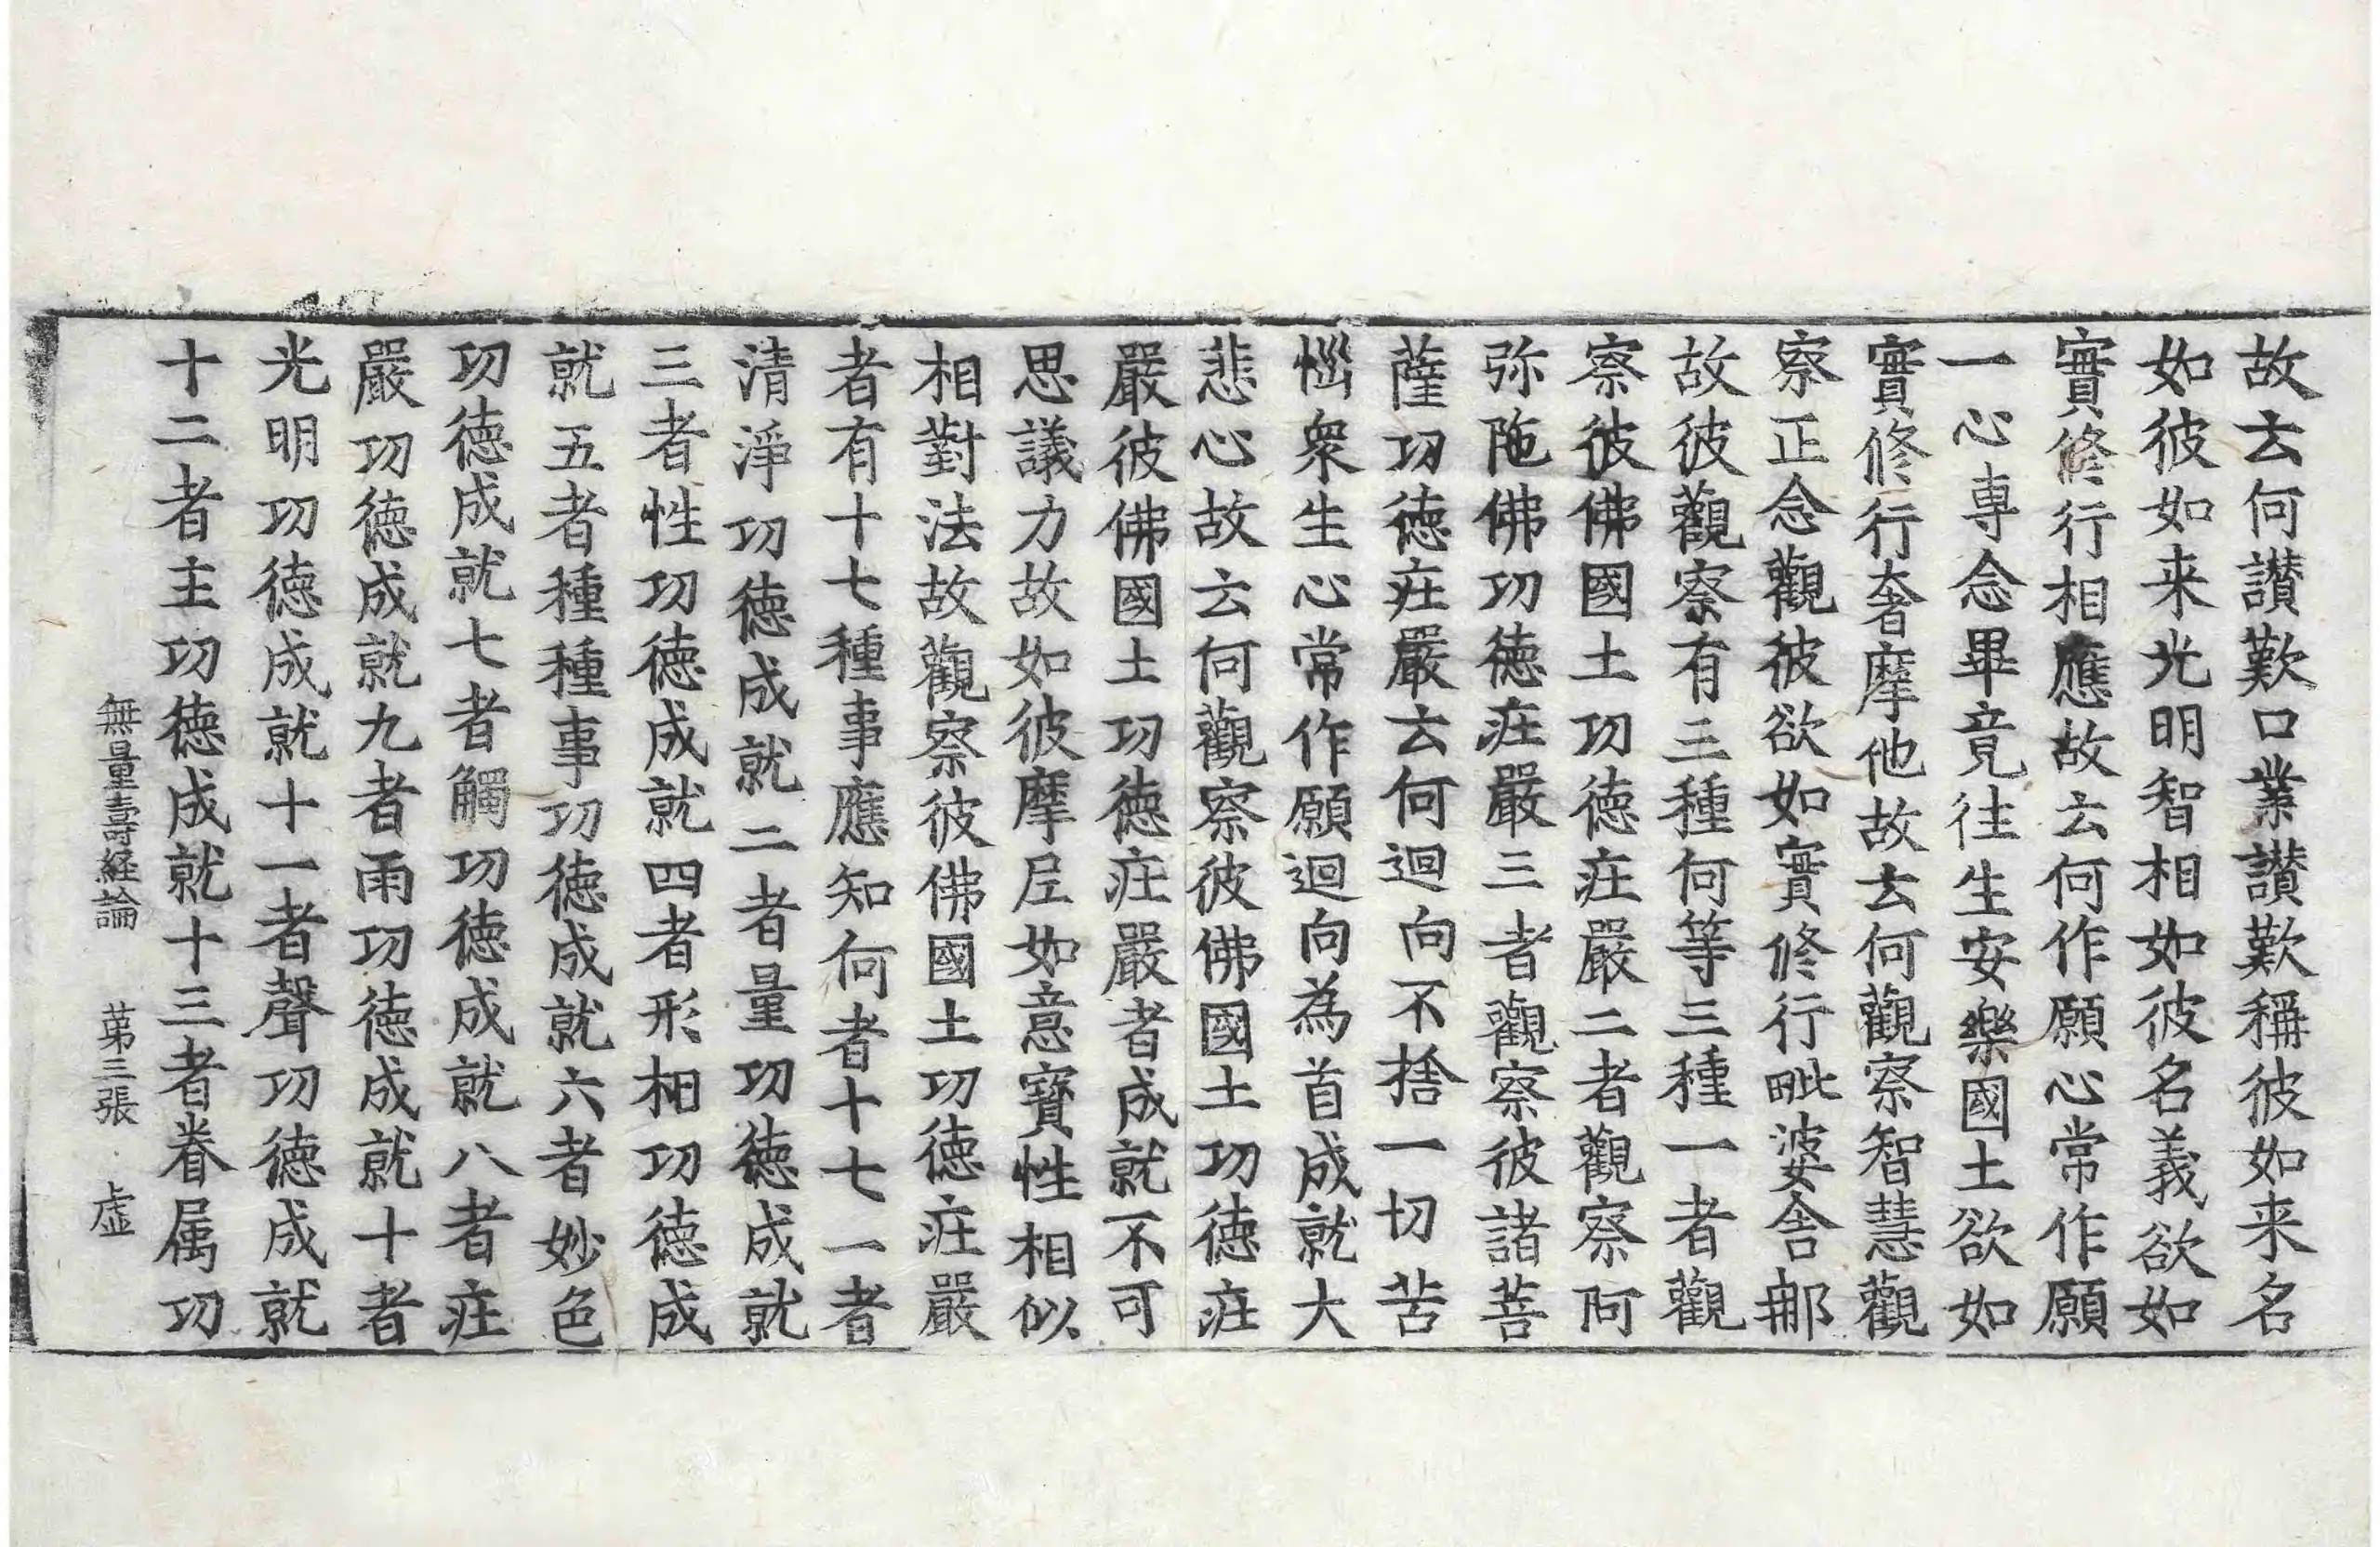 故云何讃歎口業讃歎稱彼如来名
如彼如来光明智相如彼名義欲如
實修行相應故云何作願心常作願
一心專念畢竟往生安樂國土欲如
實修行奢摩他故云何觀察智慧觀
察正念觀彼欲如實修行毗婆舍那
故彼觀察有三種何等三種一者觀
察彼佛國土功德疘嚴二者觀察阿
弥陁佛功德疘嚴三者觀察彼諸菩
薩功德疘嚴云何迴向不捨一切苦
惱衆生心常作願迴向為首成就大
悲心故云何觀察彼佛國土功德疘
嚴彼佛國土功德疘嚴者成就不可
思議力故如彼摩尼如意寶性相似
相對法故觀察彼佛國土功德疘嚴
者有十七種事應知何者十七一者
清淨功德成就二者量功德成就
三者性功德成就四者形相功德成
就五者種種事功德成就六者妙色
功德成就七者觸功德成就八者疘
嚴功德成就九者雨功德成就十者
光明功德成就十一者聲功德成就
十二者主功德成就十三者眷属功
無量壽経論 苐三張 虛